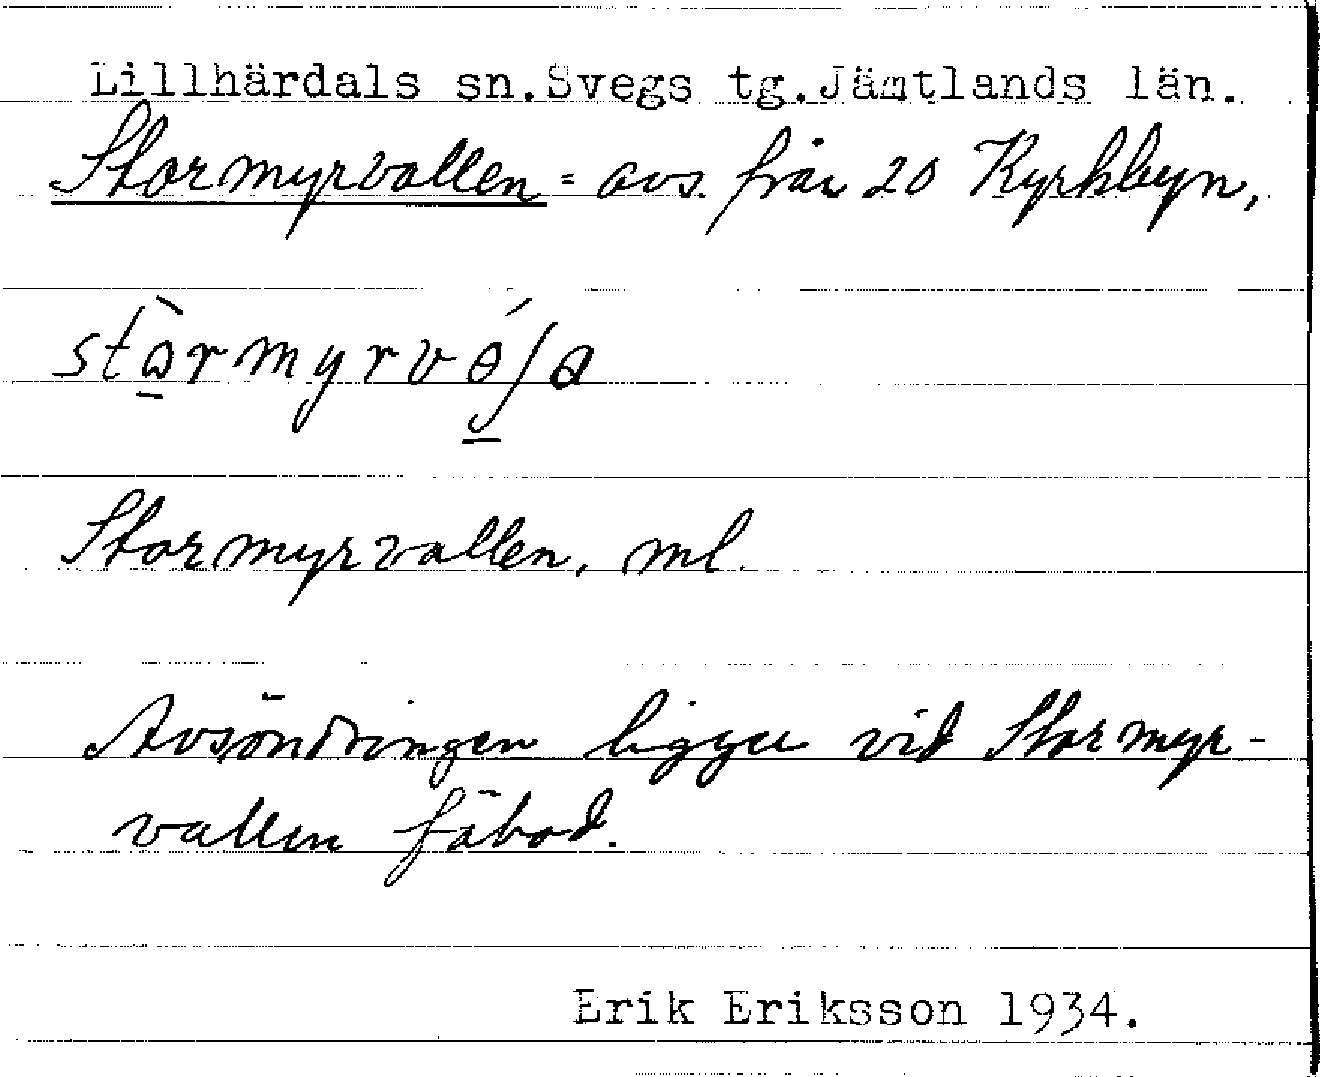 Lillhärdals sn. Svegs tg. Jämtlands län.
Stormyrvallen = avs. från 20 Kyrkbyn,
Stormyrvallen, ml.
Avsöndringen ligger vid Stormyr-
vallen fäbod.
Erik Eriksson 1934.